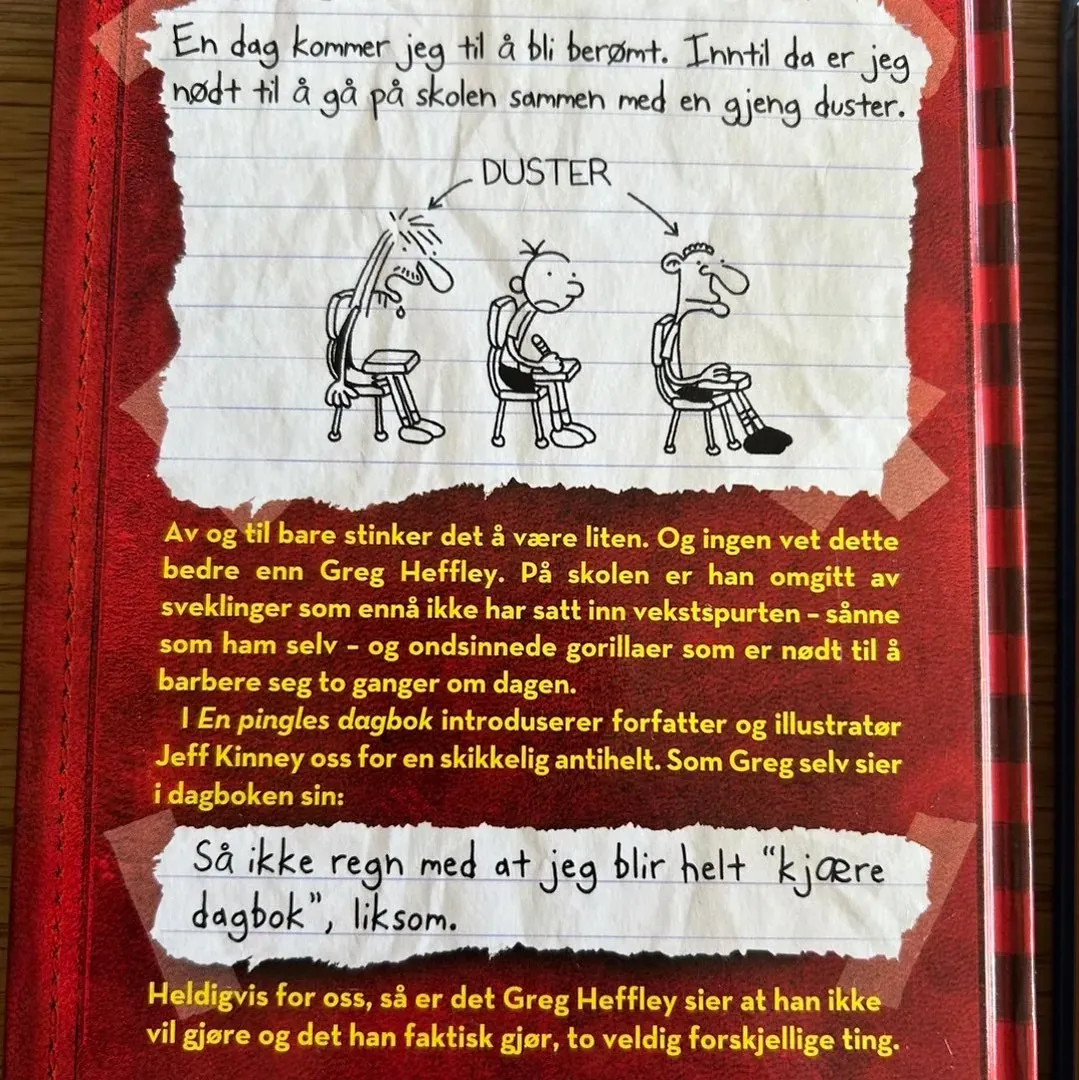 En dag kommer jeg til å bli berømt. Inntil da er jeg
nødt til å gå på skolen sammen med en gjeng duster.
DUSTER
Av og til bare stinker det å være liten. Og ingen vet dette
bedre enn Greg Heffley. På skolen er han omgitt av
sveklinger som ennå ikke har satt inn vekstspurten – sånne
som ham selv – og ondsinnede gorillaer som er nødt til å
barbere seg to ganger om dagen.
I En pingles dagbok introduserer forfatter og illustratør
Jeff Kinney oss for en skikkelig antihelt. Som Greg selv sier
i dagboken sin:
Så ikke regn med at jeg blir helt “kjære
dagbok”, liksom.
Heldigvis for oss, så er det Greg Heffley sier at han ikke
vil gjøre og det han faktisk gjør, to veldig forskjellige ting.